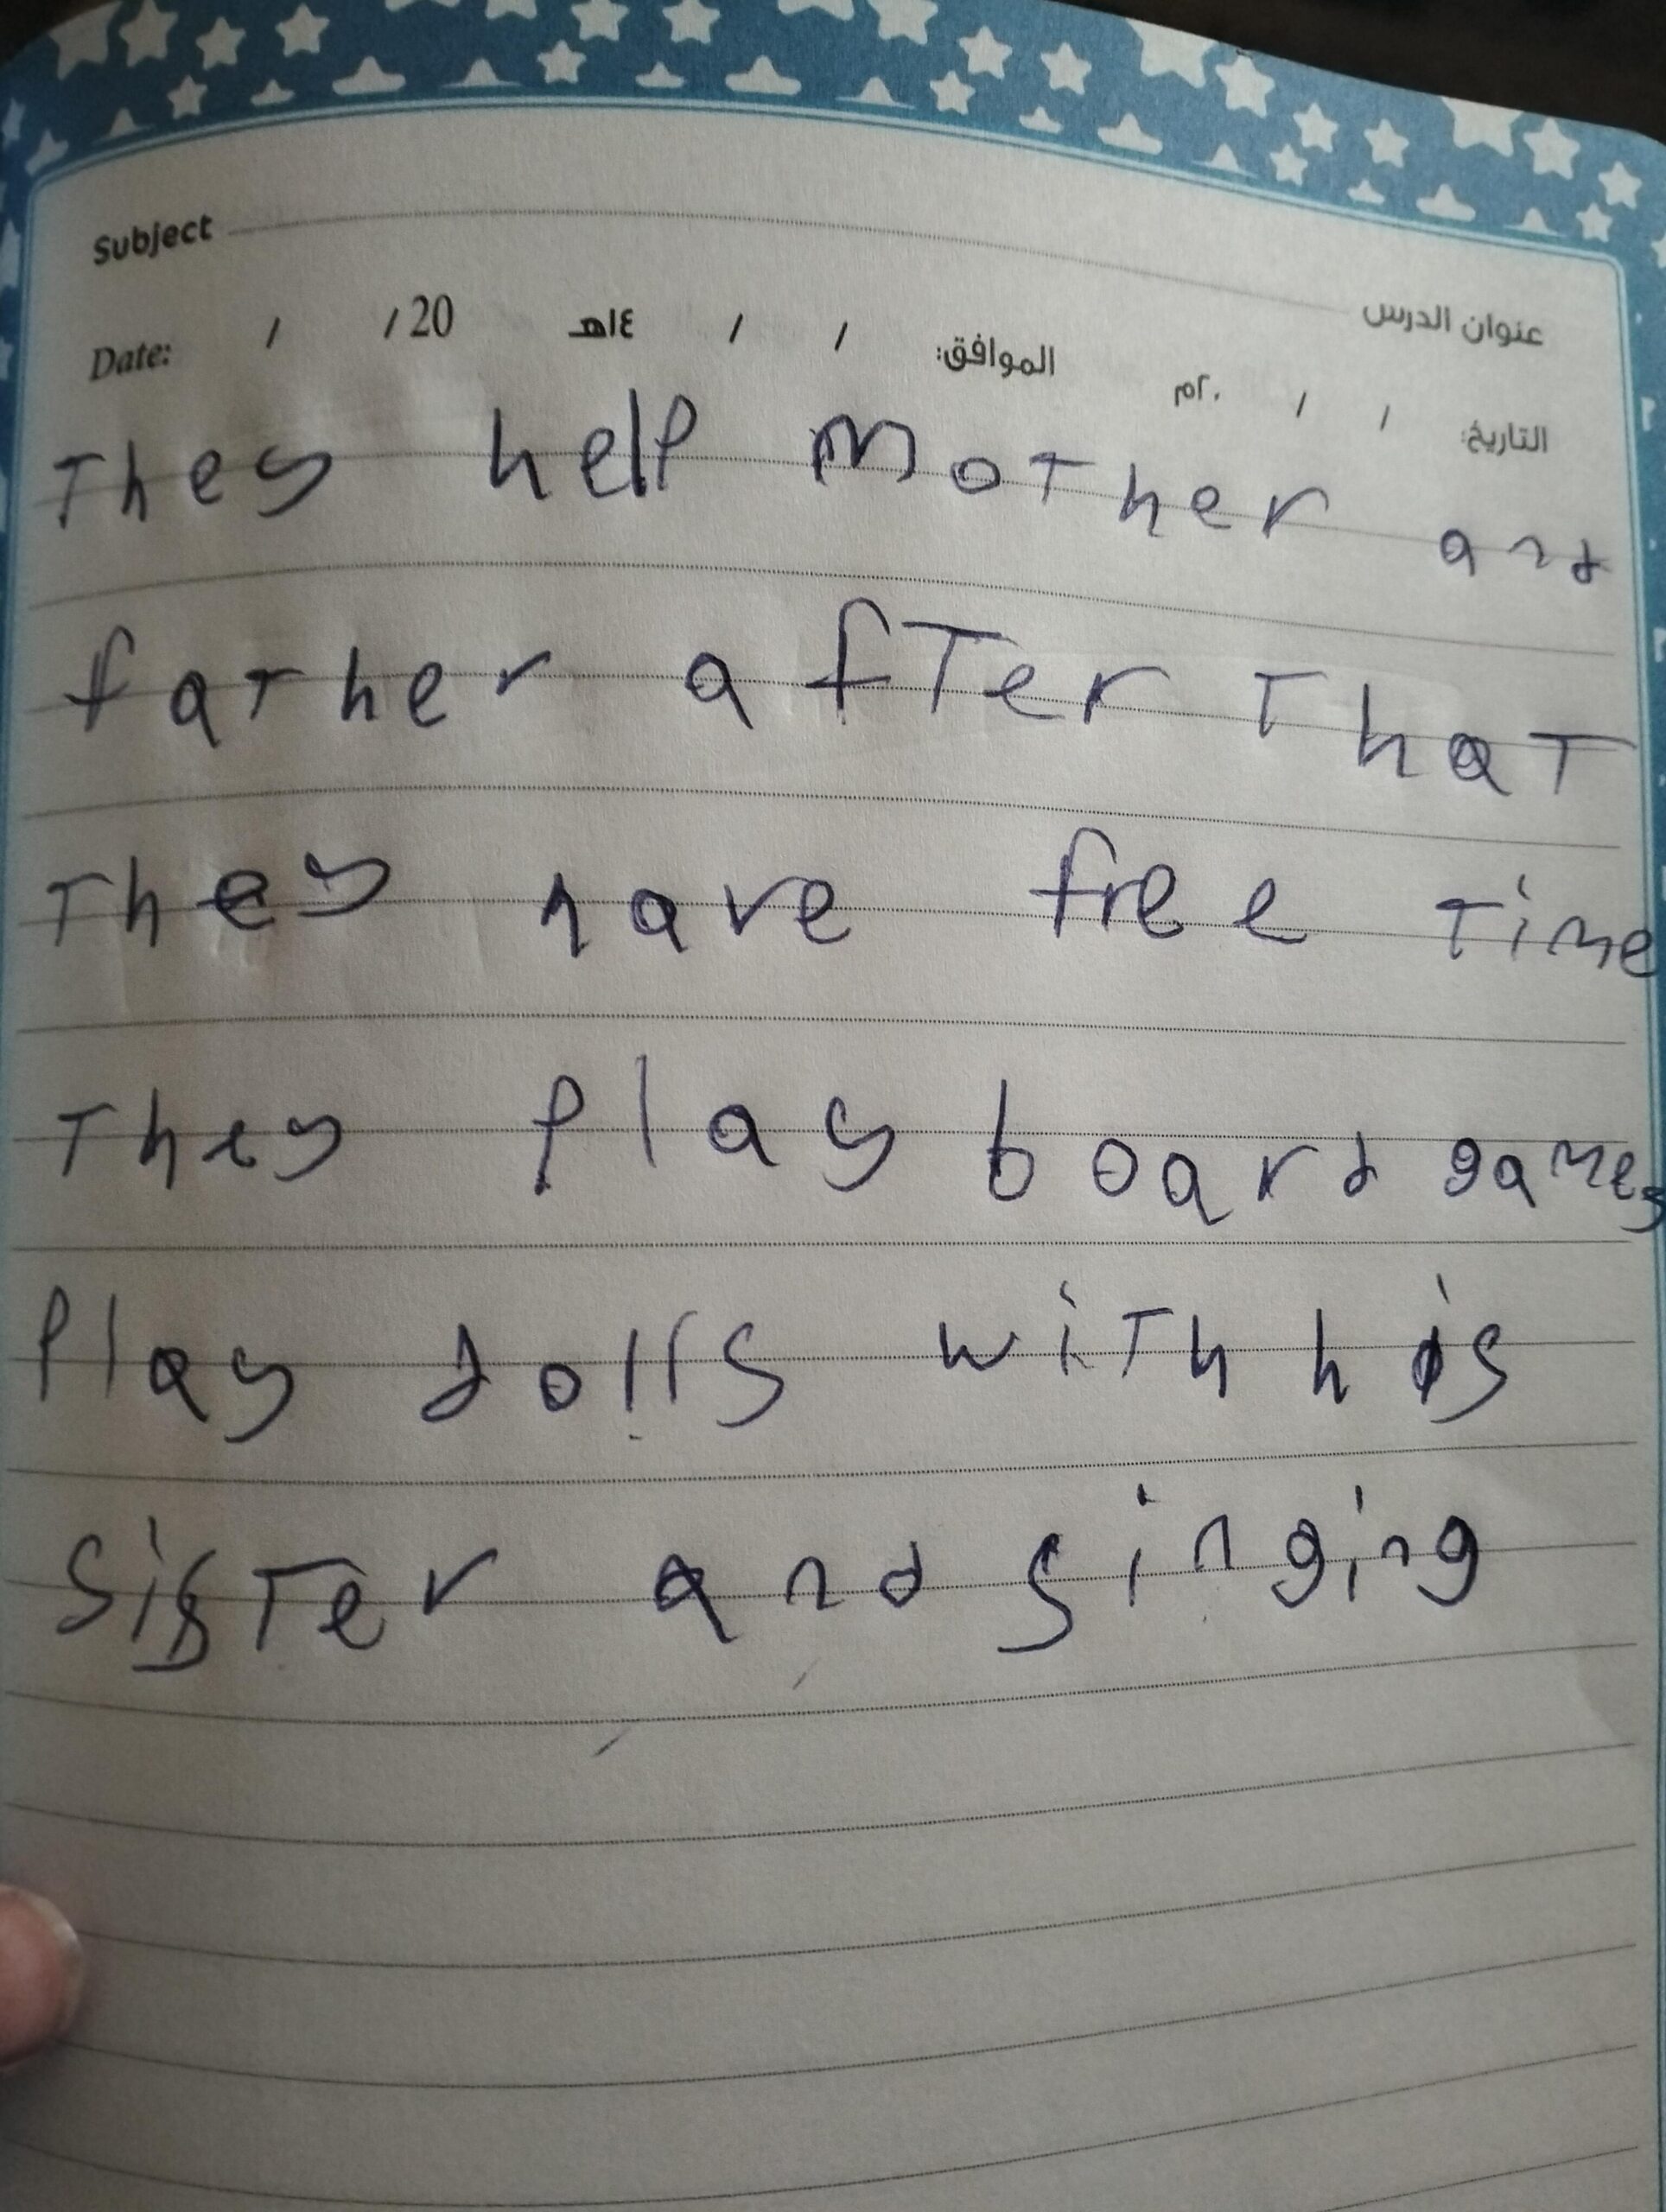 Subject عنوان الدرس
Date: / / 20 الموافق: / / ١٤هـ التاريخ: / / ٢٠م
They help Mother and
father after That
They have free Time
They play board games
Play dolls with his
Sister and singing